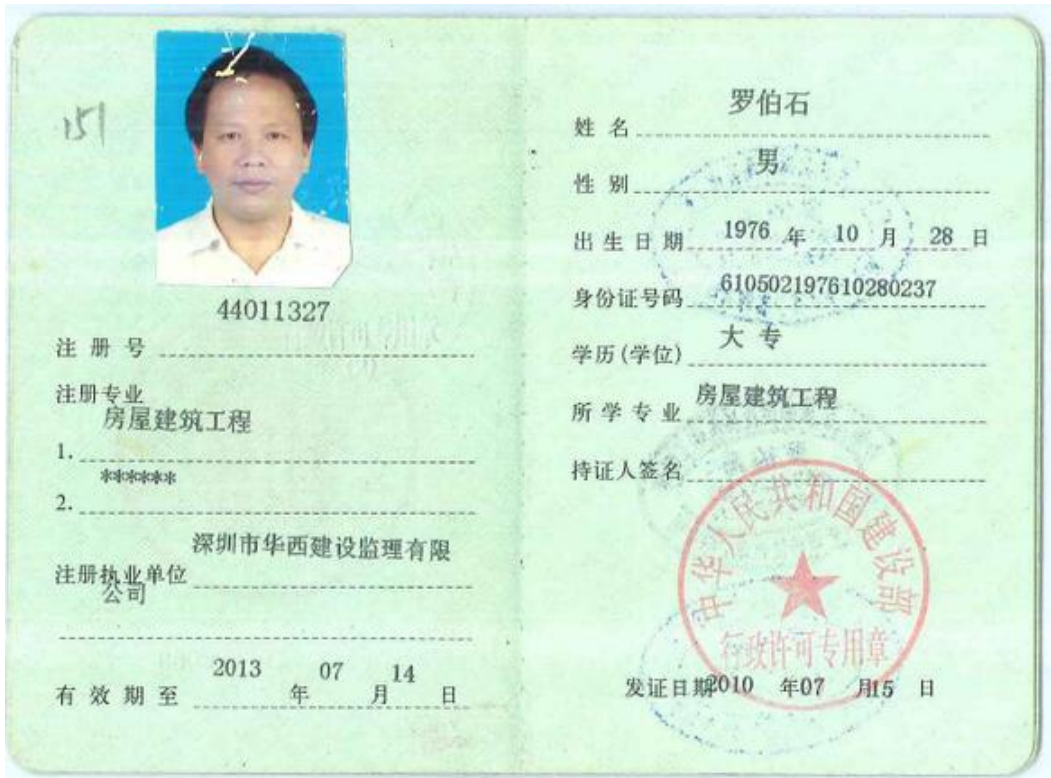 151
44011327
注 册 号
注册专业
房屋建筑工程
1.
******
2.
深圳市华西建设监理有限
注册执业单位
公司
2013 07 14
有 效 期 至 年 月 日
罗伯石
姓 名
男
性 别
出 生 日 期 1976 年 10 月 28 日
身份证号码 610502197610280237
学历(学位) 大 专
所 学 专 业 房屋建筑工程
持证人签名
中华人民共和国建设部
行政许可专用章
发证日期2010 年07 月15 日